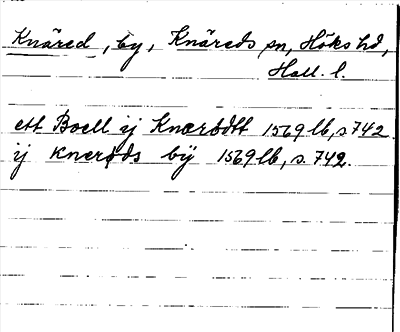 Knäred, by, Knäreds sn, Höks hd,
Hall. l.
ett Boell ij Knærødtt 1569 lb, s 742.
ij Knerøds bÿ 1569 lb, s. 742.